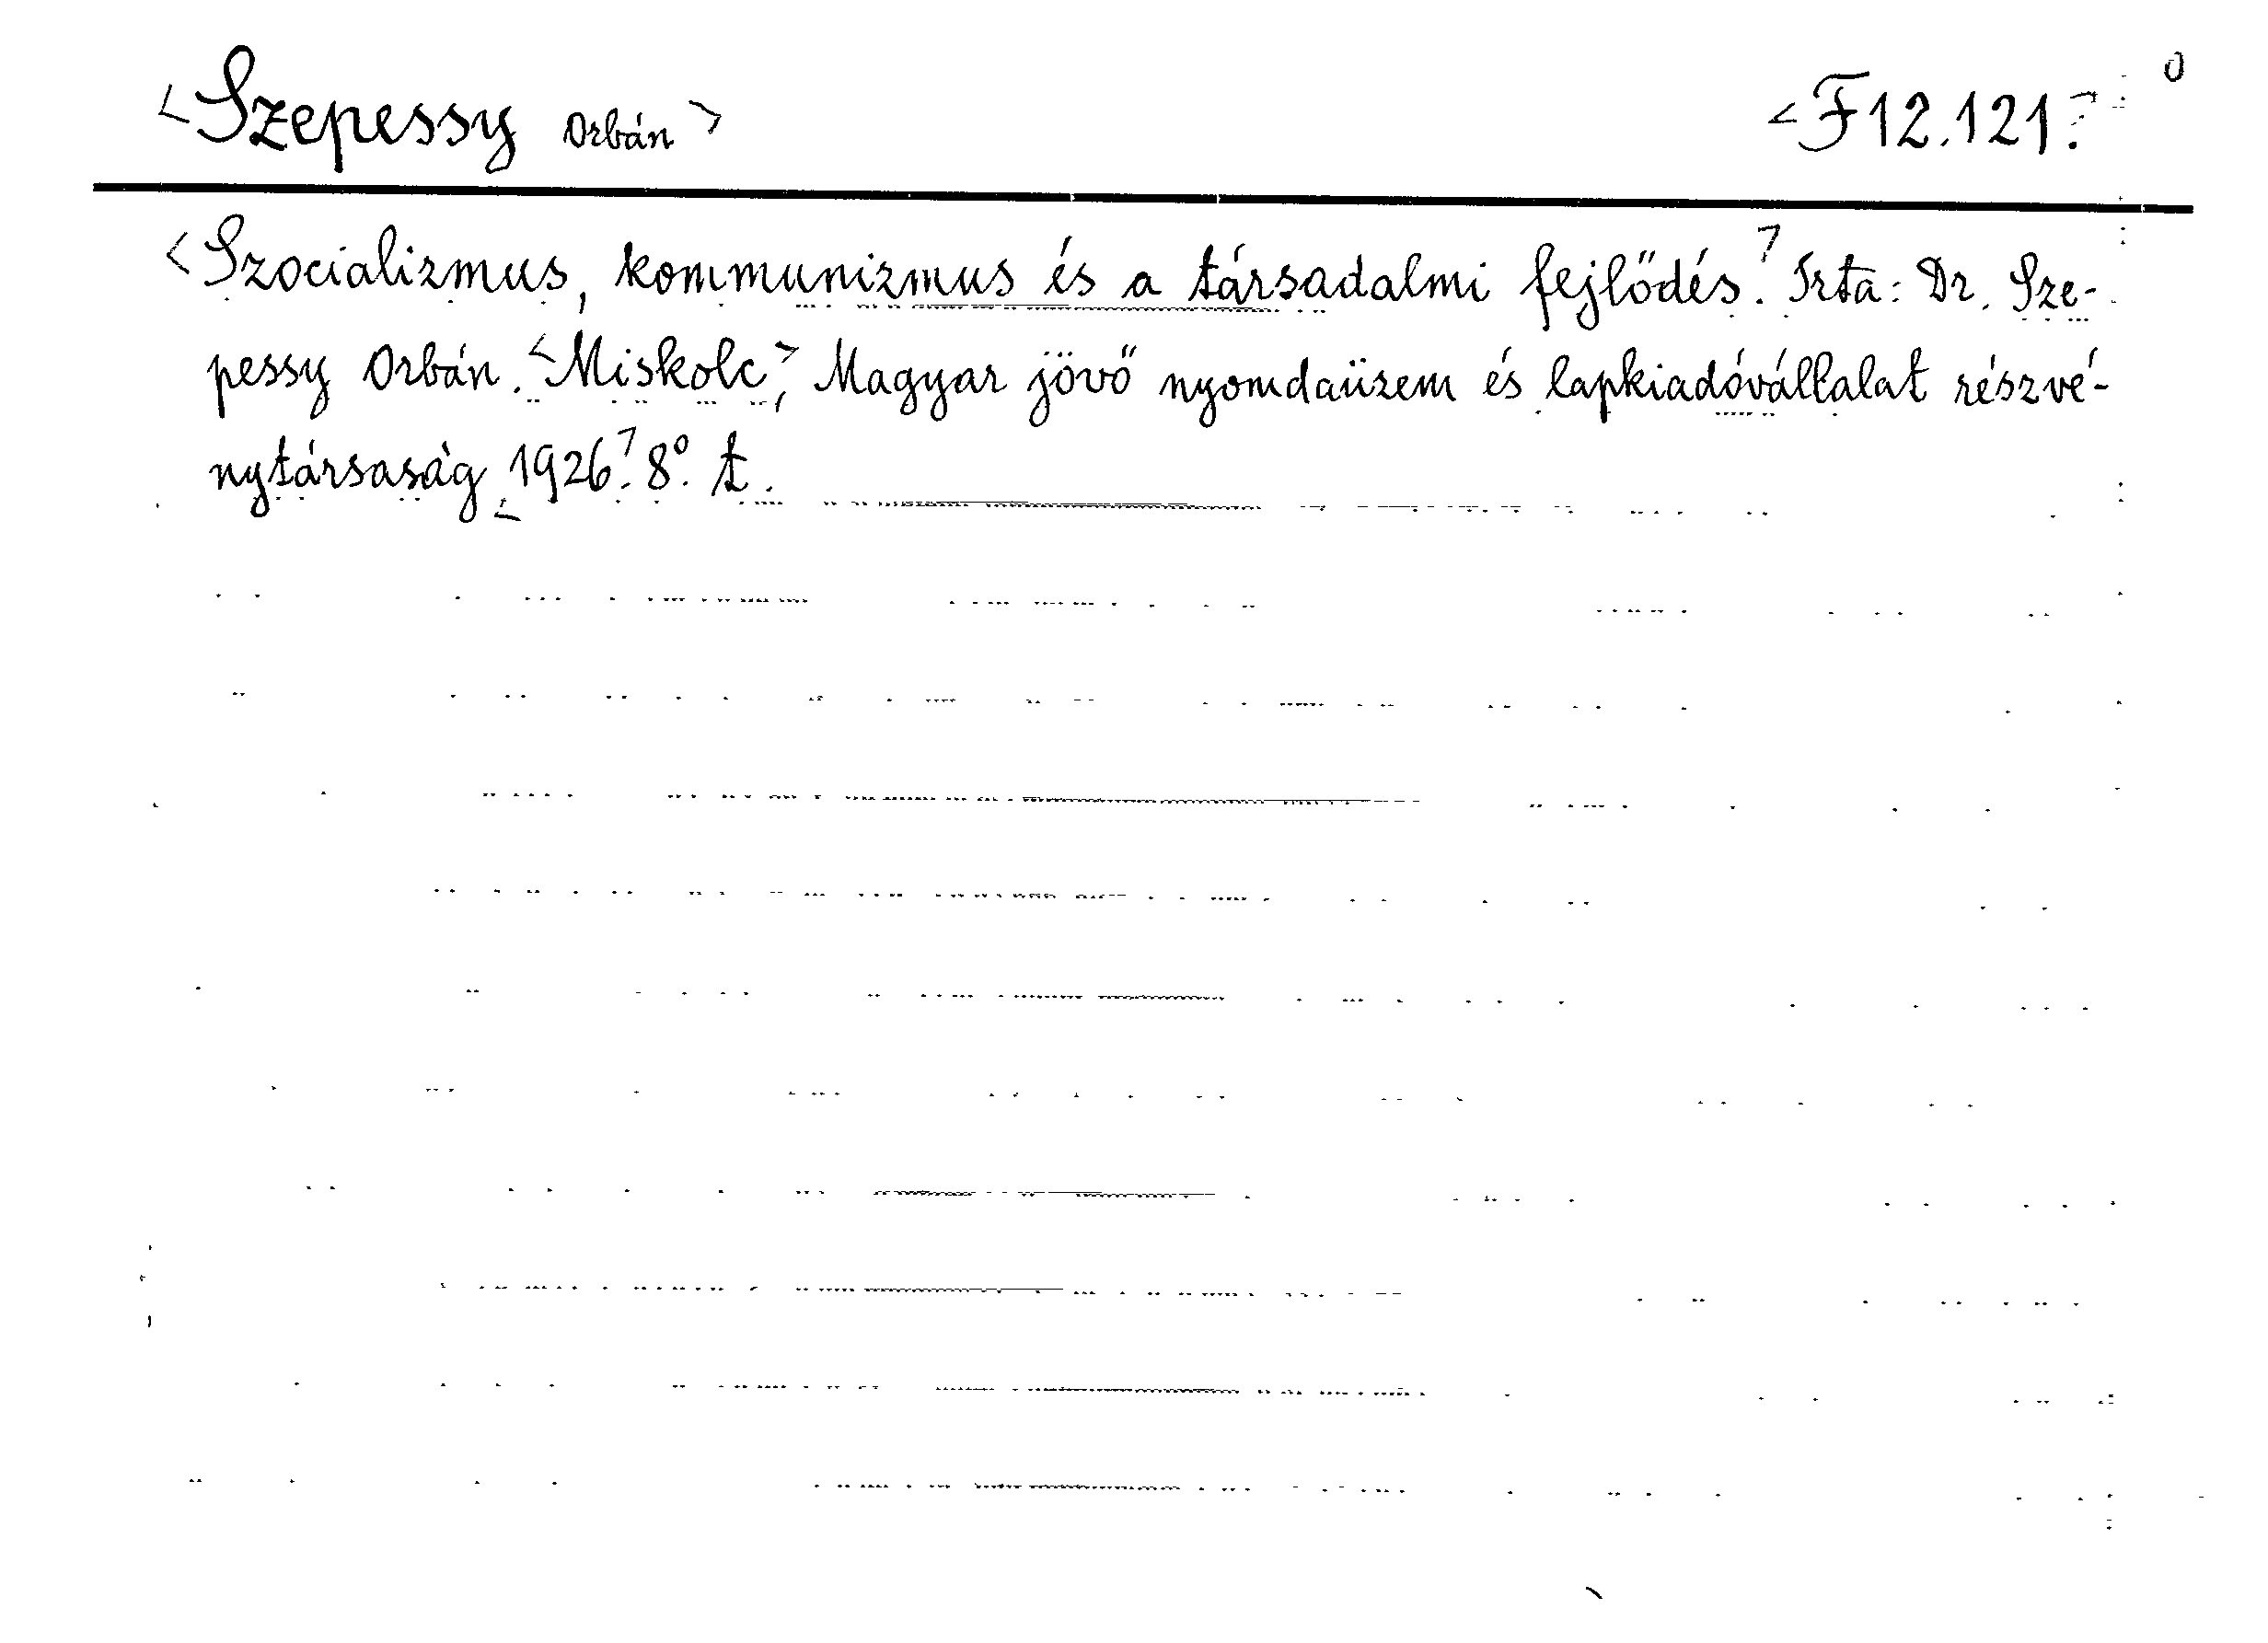 <Szepessy Orbán> <F12.121>
<Szocializmus, kommunizmus és a társadalmi fejlődés.> Irta: Dr. Sze-
pessy Orbán. <Miskolc,> Magyar jövő nyomdaüzem és lapkiadóvállalat részvé-
nytársaság <1926.> 8°. t.